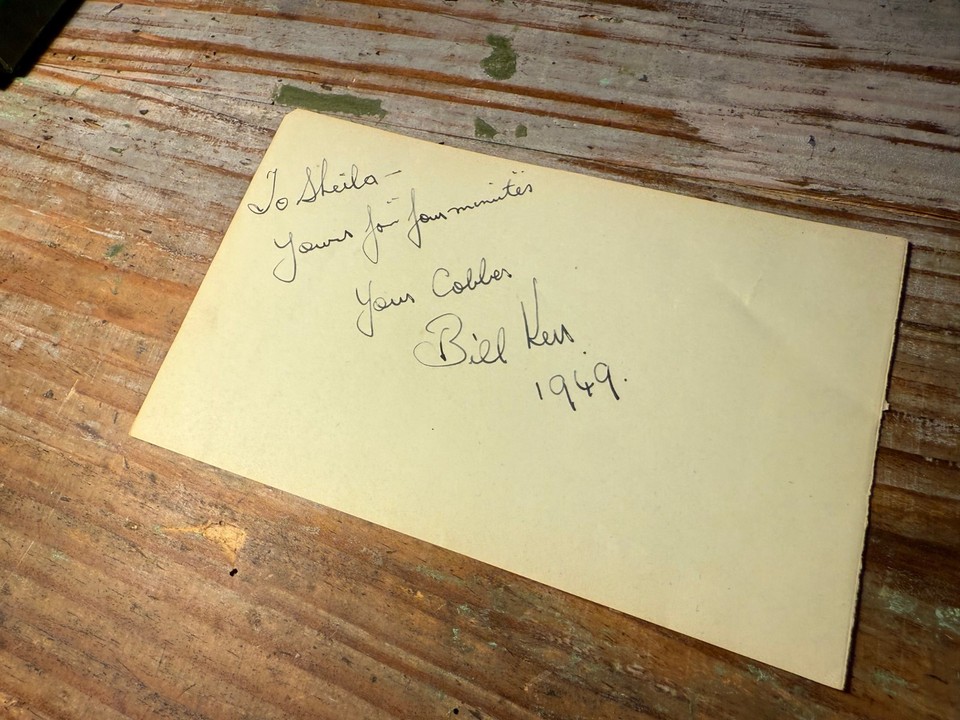 To Sheila –
Yours for four minutes
Your Cobber
Bill Kerr.
1949.